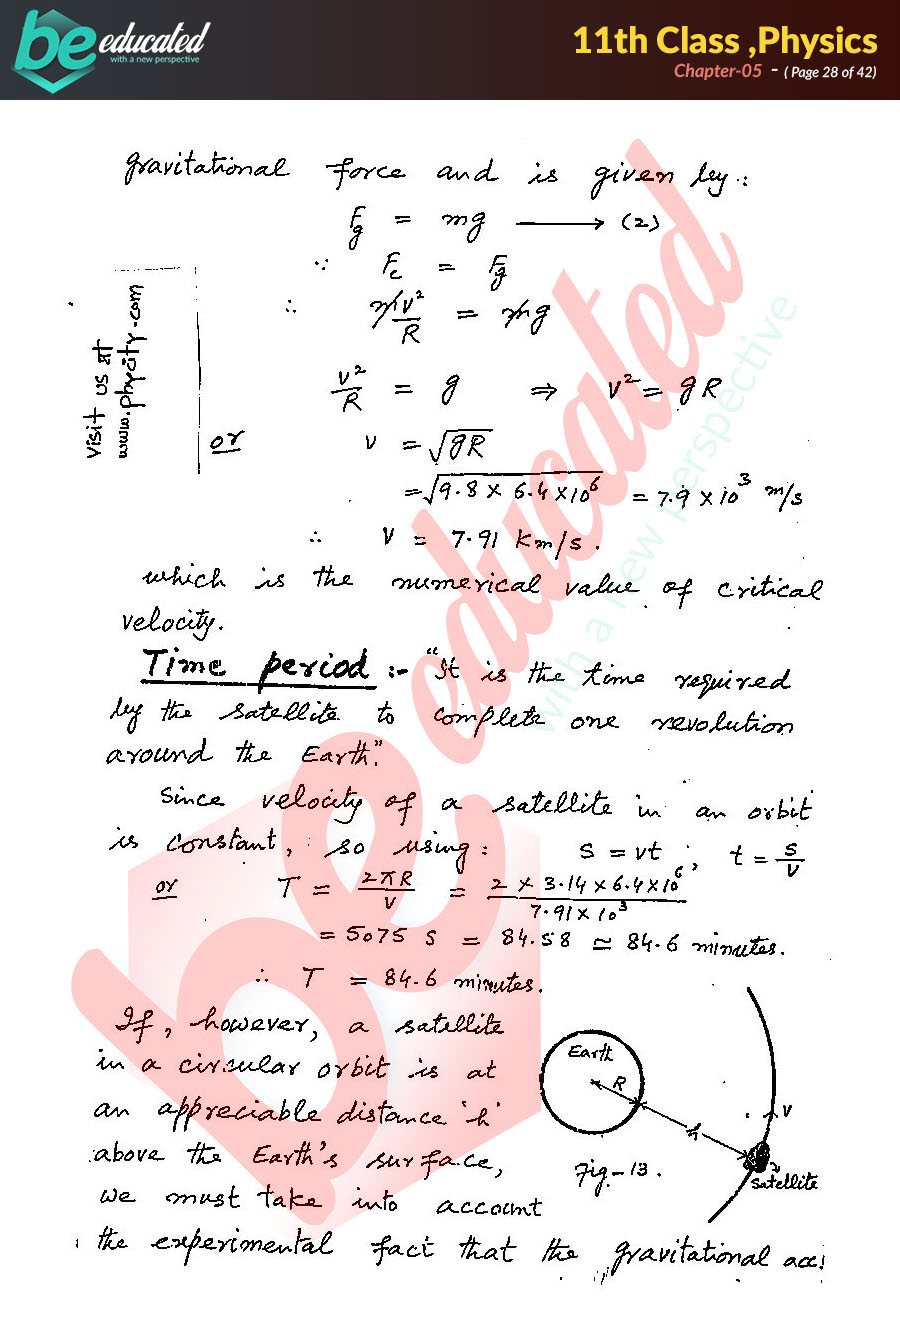 be educated
with a new perspective
11th Class ,Physics
Chapter-05 - ( Page 28 of 42)
gravitational force and is given by :
Fg = mg ⟶ (2)
∵ Fc = Fg
∴ mv²/R = mg
v²/R = g ⇒ v² = gR
or v = √gR
= √9.8 × 6.4 × 10⁶ = 7.9 × 10³ m/s
∴ V = 7.91 Km/s .
which is the numerical value of critical
velocity.
Time period :- "It is the time required
by the satellite to complete one revolution
around the Earth."
Since velocity of a satellite in an orbit
is constant, so using : S = vt , t = S/v
or T = 2πR/v = 2 × 3.14 × 6.4 × 10⁶/7.91 × 10³
= 5075 s = 84.58 ≃ 84.6 minutes.
∴ T = 84.6 minutes.
If, however, a satellite
in a circular orbit is at
an appreciable distance 'h'
above the Earth's surface,
we must take into account
the experimental fact that the gravitational acc:
Earth
R
h
v
satellite
Fig-13.
visit us at
www.phycity.com
be educated
with a new perspective